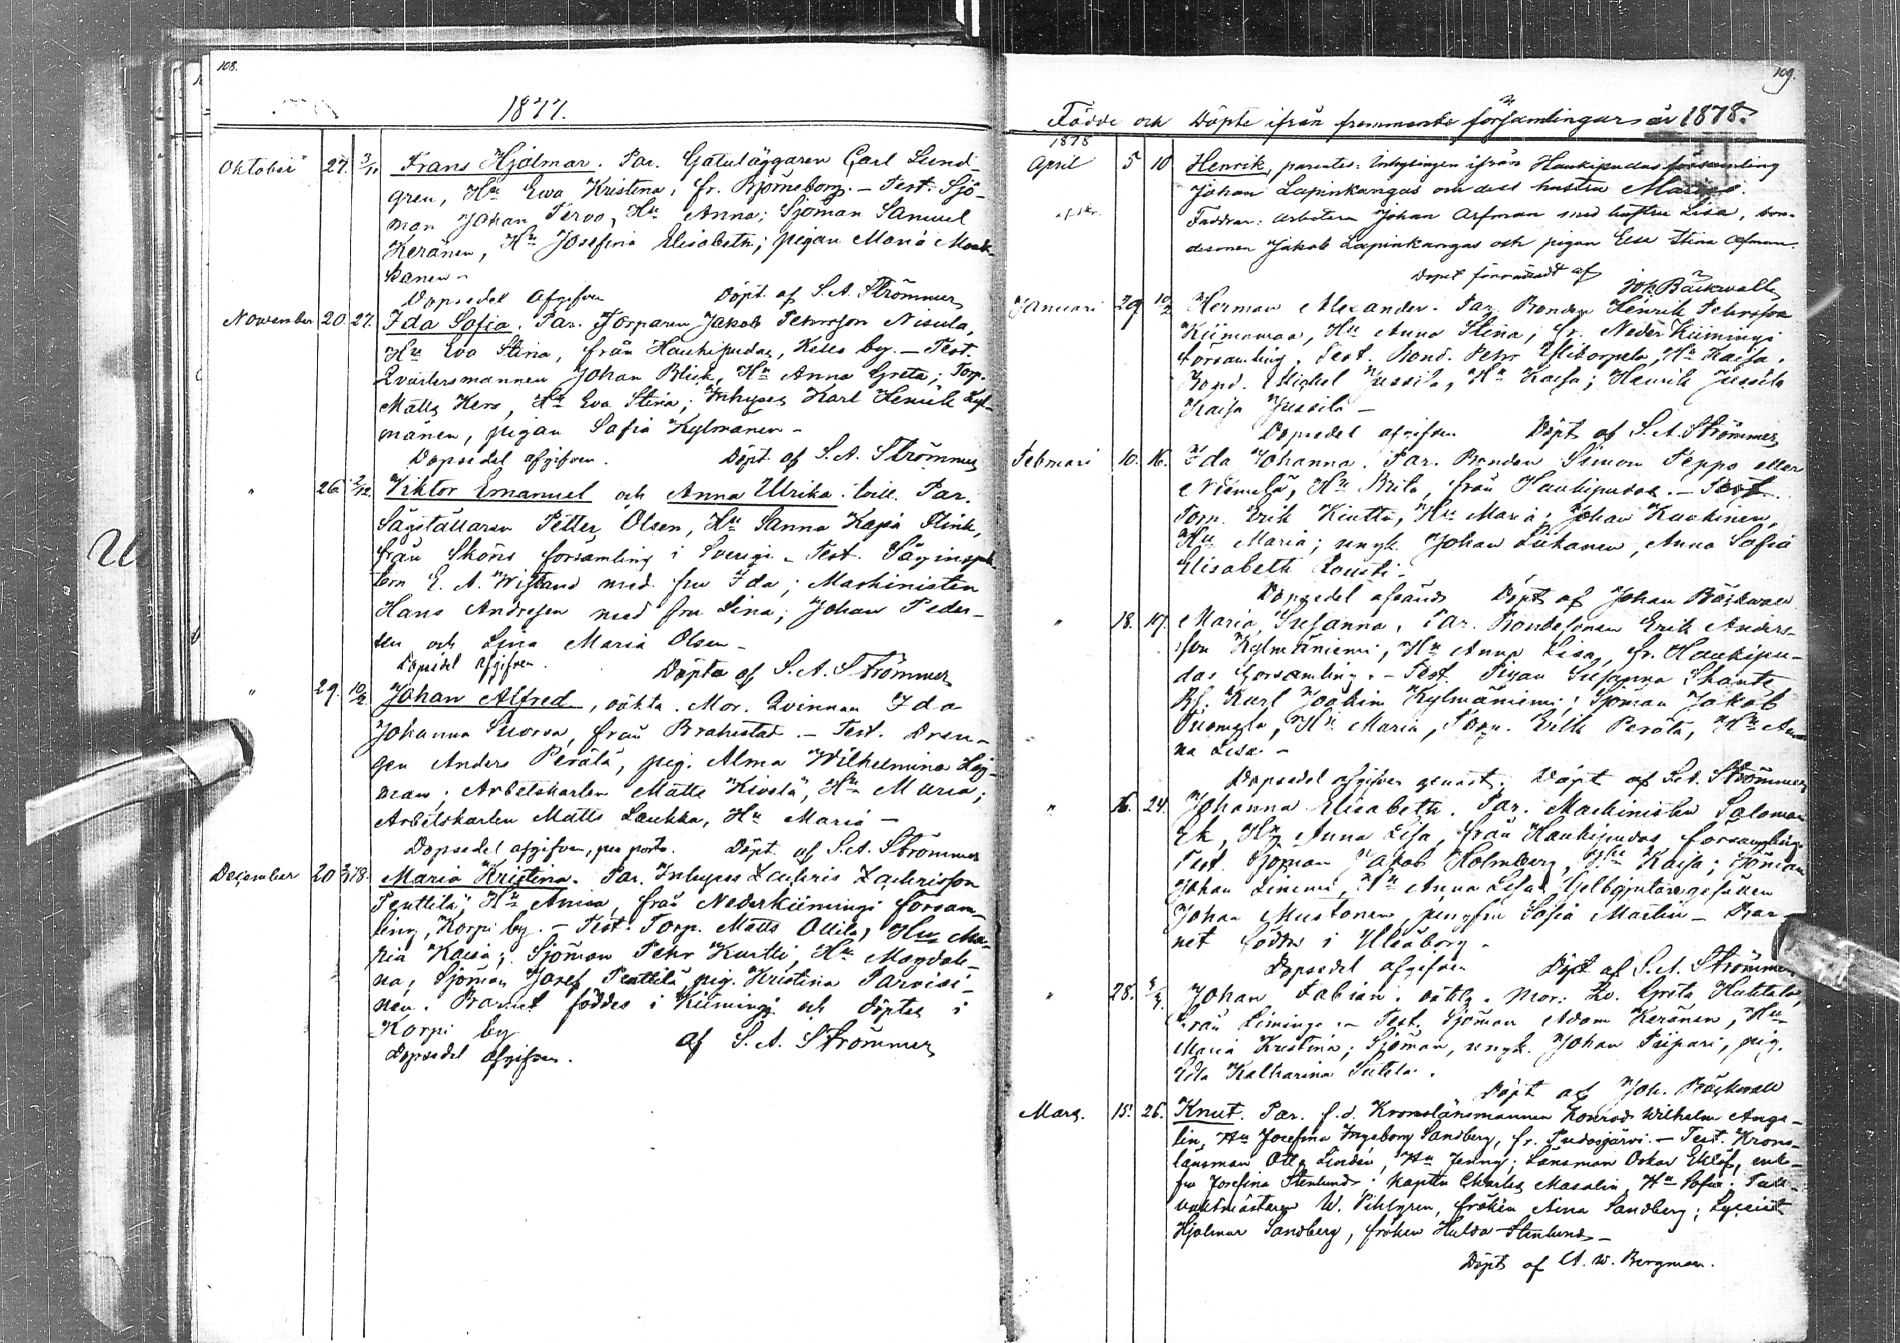 108.
1877.
Oktober 27. 3/11 Frans Hjalmar. Par. Gatuläggaren Carl Lund-
gren, Hu Ewa Kristina, fr. Björneborg. – Test. Sjö-
man Johan Tervo, Hu Anna; Sjöman Samuel
Keränen, Hu Josefina Elisabeth; pigan Maria
kanen –
Dopsedel afgifven Döpt af S. A. Strömmer
November 20 27. Ida Sofia. Par. Torparen Jakob Pehrsson Nisula,
Hu Eva Stina, från Haukipudas, Kello by. – Test.
Qvartersmannen Johan Blick, Hu Anna Greta; Torp.
Matts Kero, Hu Eva Stina; Inhyses Karl Henrik Kyl-
mänen, pigan Sofia Kylmänen –
Dopsedel afgifven. Döpt af S. A. Strömmer
" 26. 2/12. Viktor Emanuel och Anna Ulrika tvill. Par.
Sågställaren Petter Olsen, Hu Sanna Kajsa Flink,
från Sköns forsamling i Sverige – Test. Såginspek-
torn E. A. Wistrand med fru Ida; Maskinisten
Hans Andresen med fru Lina; Johan Peder-
sen och Lina Maria Olsen –
Dopsedel afgifven. Döpta af S. A. Strömmer
" 29. 10/2 Johan Alfred, oäkta. Mor. Qvinnan Ida
Johanna Snorsa, från Brahestad. – Test. Dren-
gen Anders Perälä, pig. Alma Wilhelmina
man; Arbetskarlen Matts Kivelä, Hu Maria;
Arbetskarlen Matts Laukka, Hu Maria –
Dopsedel afgifven, per posto. Döpt af S. A. Strömmer
December 20 78. Maria Kristina. Par. Inhyses Zachris Zachrisson
Penttilä, Hu Anna, från Nederkiiminge försam-
ling, Korpi by. – Test. Torp. Matts Ollila, Hu Ma-
ria Kaisa; Sjöman Pehr Kurtti, Hu Magdale-
na; Sjöman Josef Penttilä, pig. Kristina Parviai-
nen. Barnet föddes i Kiiminge och döptes i
Korpi by af S. A. Strömmer
Dopsedel afgifven.
109.
Födde och Döpte ifrån fremmande församlingar år 1878.
1878
April 5 10 Henrik, parentes: Inhysingen ifrån Haukipudas församling
Johan Lapinkangas och dess hustru
Faddrar: arbetaren Johan Arfman med hustru Lisa, bon-
desonen Jakob Lapinkangas och pigan Elsa Stina Arfman.
Dopet förrättadt af Joh. Bäckvall
Januari 29 10/2 Herman Alexander. Par. Bonden Henrik Pehrsson
Kiimamaa, Hu Anna Stina, fr. Neder Kiiminge
forsamling. Test. Bond. Pehr Ylikorpela, Hu Kaisa;
Bond. Michel Jussila, Hu Kaisa; Henrik Jussila
Kaisa Jussila –
Dopsedel afgifven Döpt af S. A. Strömmer
Februari 10. 16. Ida Johanna. Par. Bonden Simon Peppo eller
Niemelä, Hu Brita, från Haukipudas. – Test.
Torp. Erik Kiutta, Hu Maria; Johan Kaakinen,
Hu Maria; ungk. Johan Liikanen, Anna Sofia
Elisabeth
Dopsedel afsänd Döpt af Johan Bäckvall
" 18. 19. Maria Susanna. Par. Bondesonen Erik Anders-
son Kylmäniemi, Hu Anna Lisa, fr. Haukipu-
das forsamling. – Test. Pigan Susanna
Karl Joakim Kylmäniemi; Sjöman Jakob
Tuomela, Hu Maria, Torp. Erik Perälä, Hu An-
na Lisa –
Dopsedel afgifven genast, Döpt af S. A. Strömmer
" 16. 24. Johanna Elisabeth. Par. Maskinisten Salomon
Ek, Hu Anna Lisa, från Haukipudas forsamling
Test. Sjöman Jakob Holmberg, Hu Kaisa; Sjöman
Johan Lineni, Hu Anna Lisa; Gelbgjutaregesällen
Johan Mustonen, jungfru Sofia Martin – Bar-
net föddes i Uleåborg –
Dopsedel afgifven Döpt af S. A. Strömmer
" 28. Johan Fabian. oäkta. Mor: Qv. Greta Huttala,
från Liminge. – Test. Sjöman Adam Keränen, Hu
Maria Kristina; Sjöman, ungk. Johan Piipari, pig.
Ida Katharina
Döpt af Joh. Bäckvall
Mars. 15. 26. Knut. Par. f.d. Kronolänsmannen Konrad Wilhelm Ange-
lin, Hu Josefina Ingeborg Sandberg, fr. Pudasjärvi. – Test. Krono-
länsman Otto Lindén, Hu Jenny; Länsman Oskar Eklöf, enke-
fru Josefina Stenlund; Kapten Charles Masalin, Hu Sofia; Tull-
vaktmästaren W. Pihlgren, fröken Aina Sandberg; Lyceist
Hjalmar Sandberg, fröken Hulda Stenlund –
Döpt af A. W. Bergman.